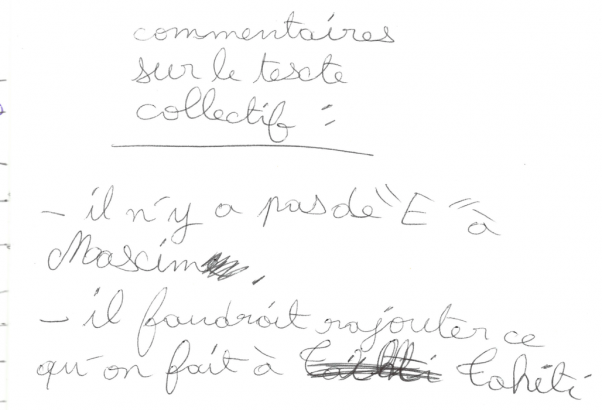 commentaires
sur le texte
collectif :
- il n'y a pas de "E" à
Maxim.
- il faudrait rajouter ce
qu'on fait à Tahiti